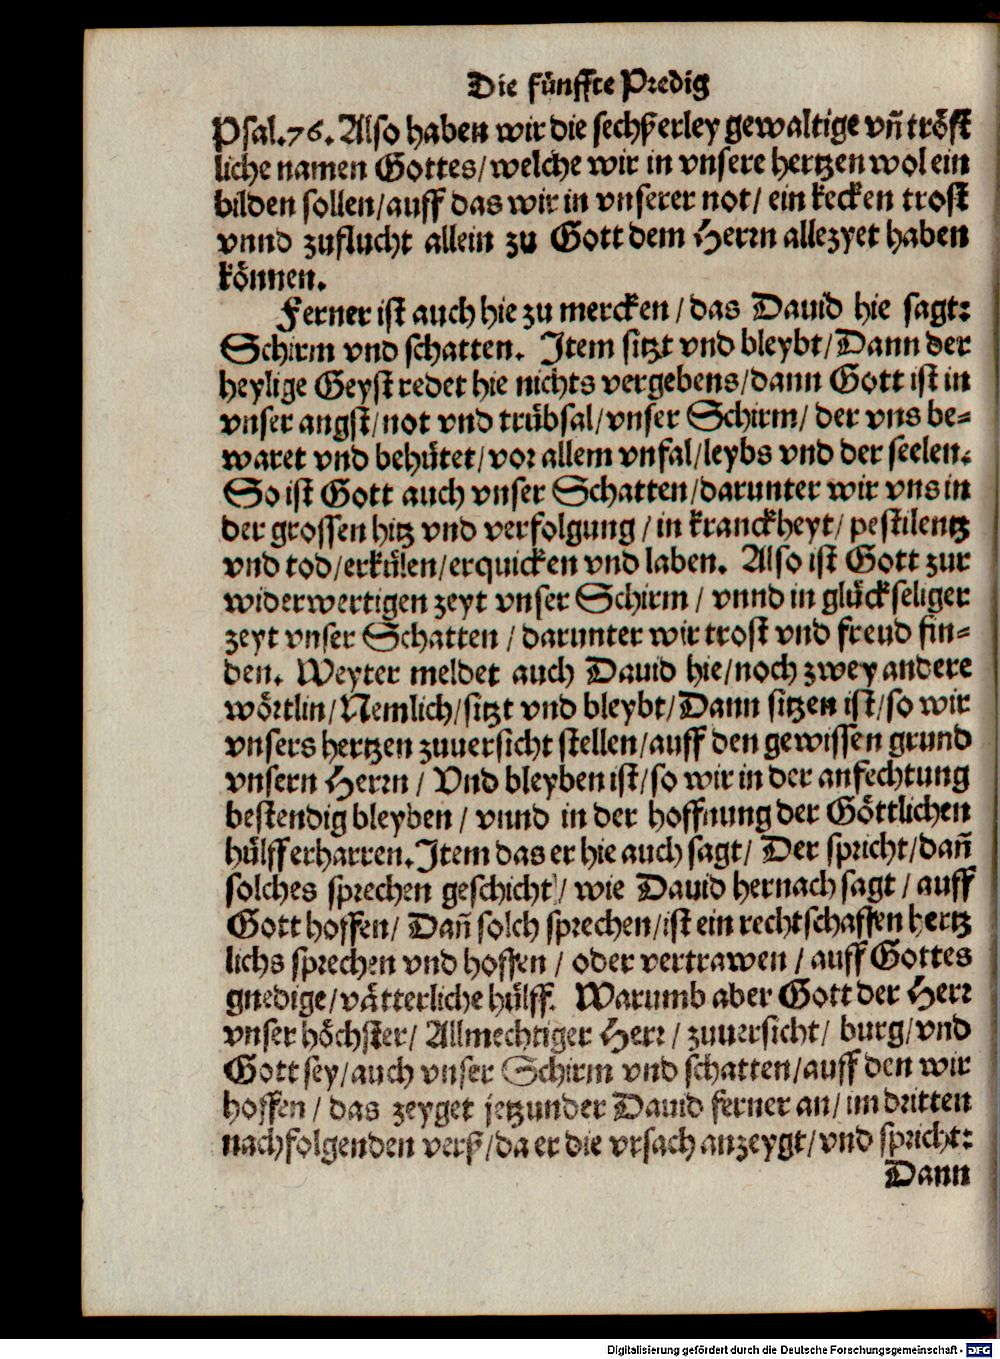 Die fünffte Predig
Psal.76. Also haben wir die sechßerley gewaltige vñ tröst
liche namen Gottes/welche wir in vnsere hertzen wol ein
bilden sollen/auff das wir in vnserer not/ ein kecken trost
vnnd zuflucht allein zu Gott dem Herrn allezyet haben
können.
Ferner ist auch hie zu mercken/das Dauid hie sagt:
Schirm vnd schatten. Item sitzt vnd bleybt/Dann der
heylige Geyst redet hie nichts vergebens/dann Gott ist in
vnser angst/not vnd trübsal/vnser Schirm/ der vns be-
waret vnd behütet/vor allem vnfal/leybs vnd der seelen.
So ist Gott auch vnser Schatten/darunter wir vns in
der grossen hitz vnd verfolgung/in kranckheyt/pestilentz
vnd tod/erkülen/erquicken vnd laben. Also ist Gott zur
widerwertigen zeyt vnser Schirm/ vnnd in glückseliger
zeyt vnser Schatten/darunter wir trost vnd freud fin-
den. Weyter meldet auch Dauid hie/noch zwey andere
wörtlin/Nemlich/sitzt vnd bleybt/Dann sitzen ist/so wir
vnsers hertzen zuuersicht stellen/auff den gewissen grund
vnsern Herrn/ Vnd bleyben ist/so wir in der anfechtung
bestendig bleyben/ vnnd in der hoffnung der Göttlichen
hülff erharren. Item das er hie auch sagt/ Der spricht/dañ
solches sprechen geschicht/ wie Dauid hernach sagt/auff
Gott hoffen/ Dañ solch sprechen/ist ein rechtschaffen hertz
lichs sprechen vnd hoffen/ oder vertrawen/auff Gottes
gnedige/vätterliche hülff. Warumb aber Gott der Herr
vnser höchster/ Allmechtiger Herr/zuuersicht/ burg/vnd
Gott sey/auch vnser Schirm vnd schatten/auff den wir
hoffen/das zeyget jetzunder Dauid ferner an/im dritten
nachfolgenden verß/da er die vrsach anzeygt/vnd spricht:
Dann
Digitalisierung gefördert durch die Deutsche Forschungsgemeinschaft - DFG